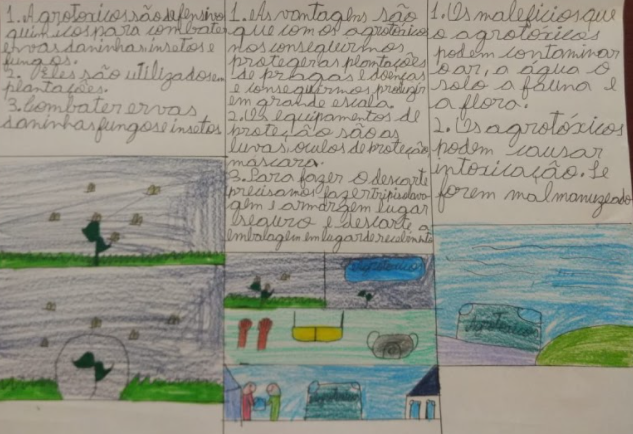 1. Agrotoxicos são defensivos
quimicos para combater
ervas daninhas insetos e
fungos.
2. Eles são utilizados em
plantações.
3. Combater ervas
daninhas fungos e insetos
1. As vantagens são
que com os agrotóxicos
nos conseguimos
proteger as plantações
de pragas e doenças
e conseguirmos produzir
em grande escala.
2. Os equipamentos de
proteção são as
luvas, oculos de proteção,
máscara.
3. Para fazer o descarte
precisamos fazer triplice lava
gem e armargem lugar
seguro e descarte a
embalagem em lugar de
agrotoxicos
agrotoxicos
1. Os maleficios que
o agrotóxicos
podem contaminar
o ar, a água o
solo a fauna e
a flora.
2. Os agrotóxicos
podem causar
intoxicação. Se
forem mal manuzeado
agrotoxicos